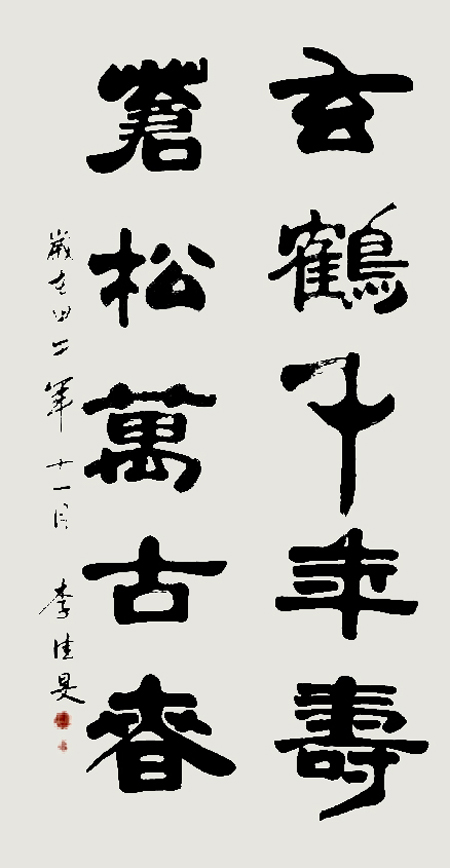 玄鶴千年壽
蒼松萬古春
歲在四二年十一月 李佳旻